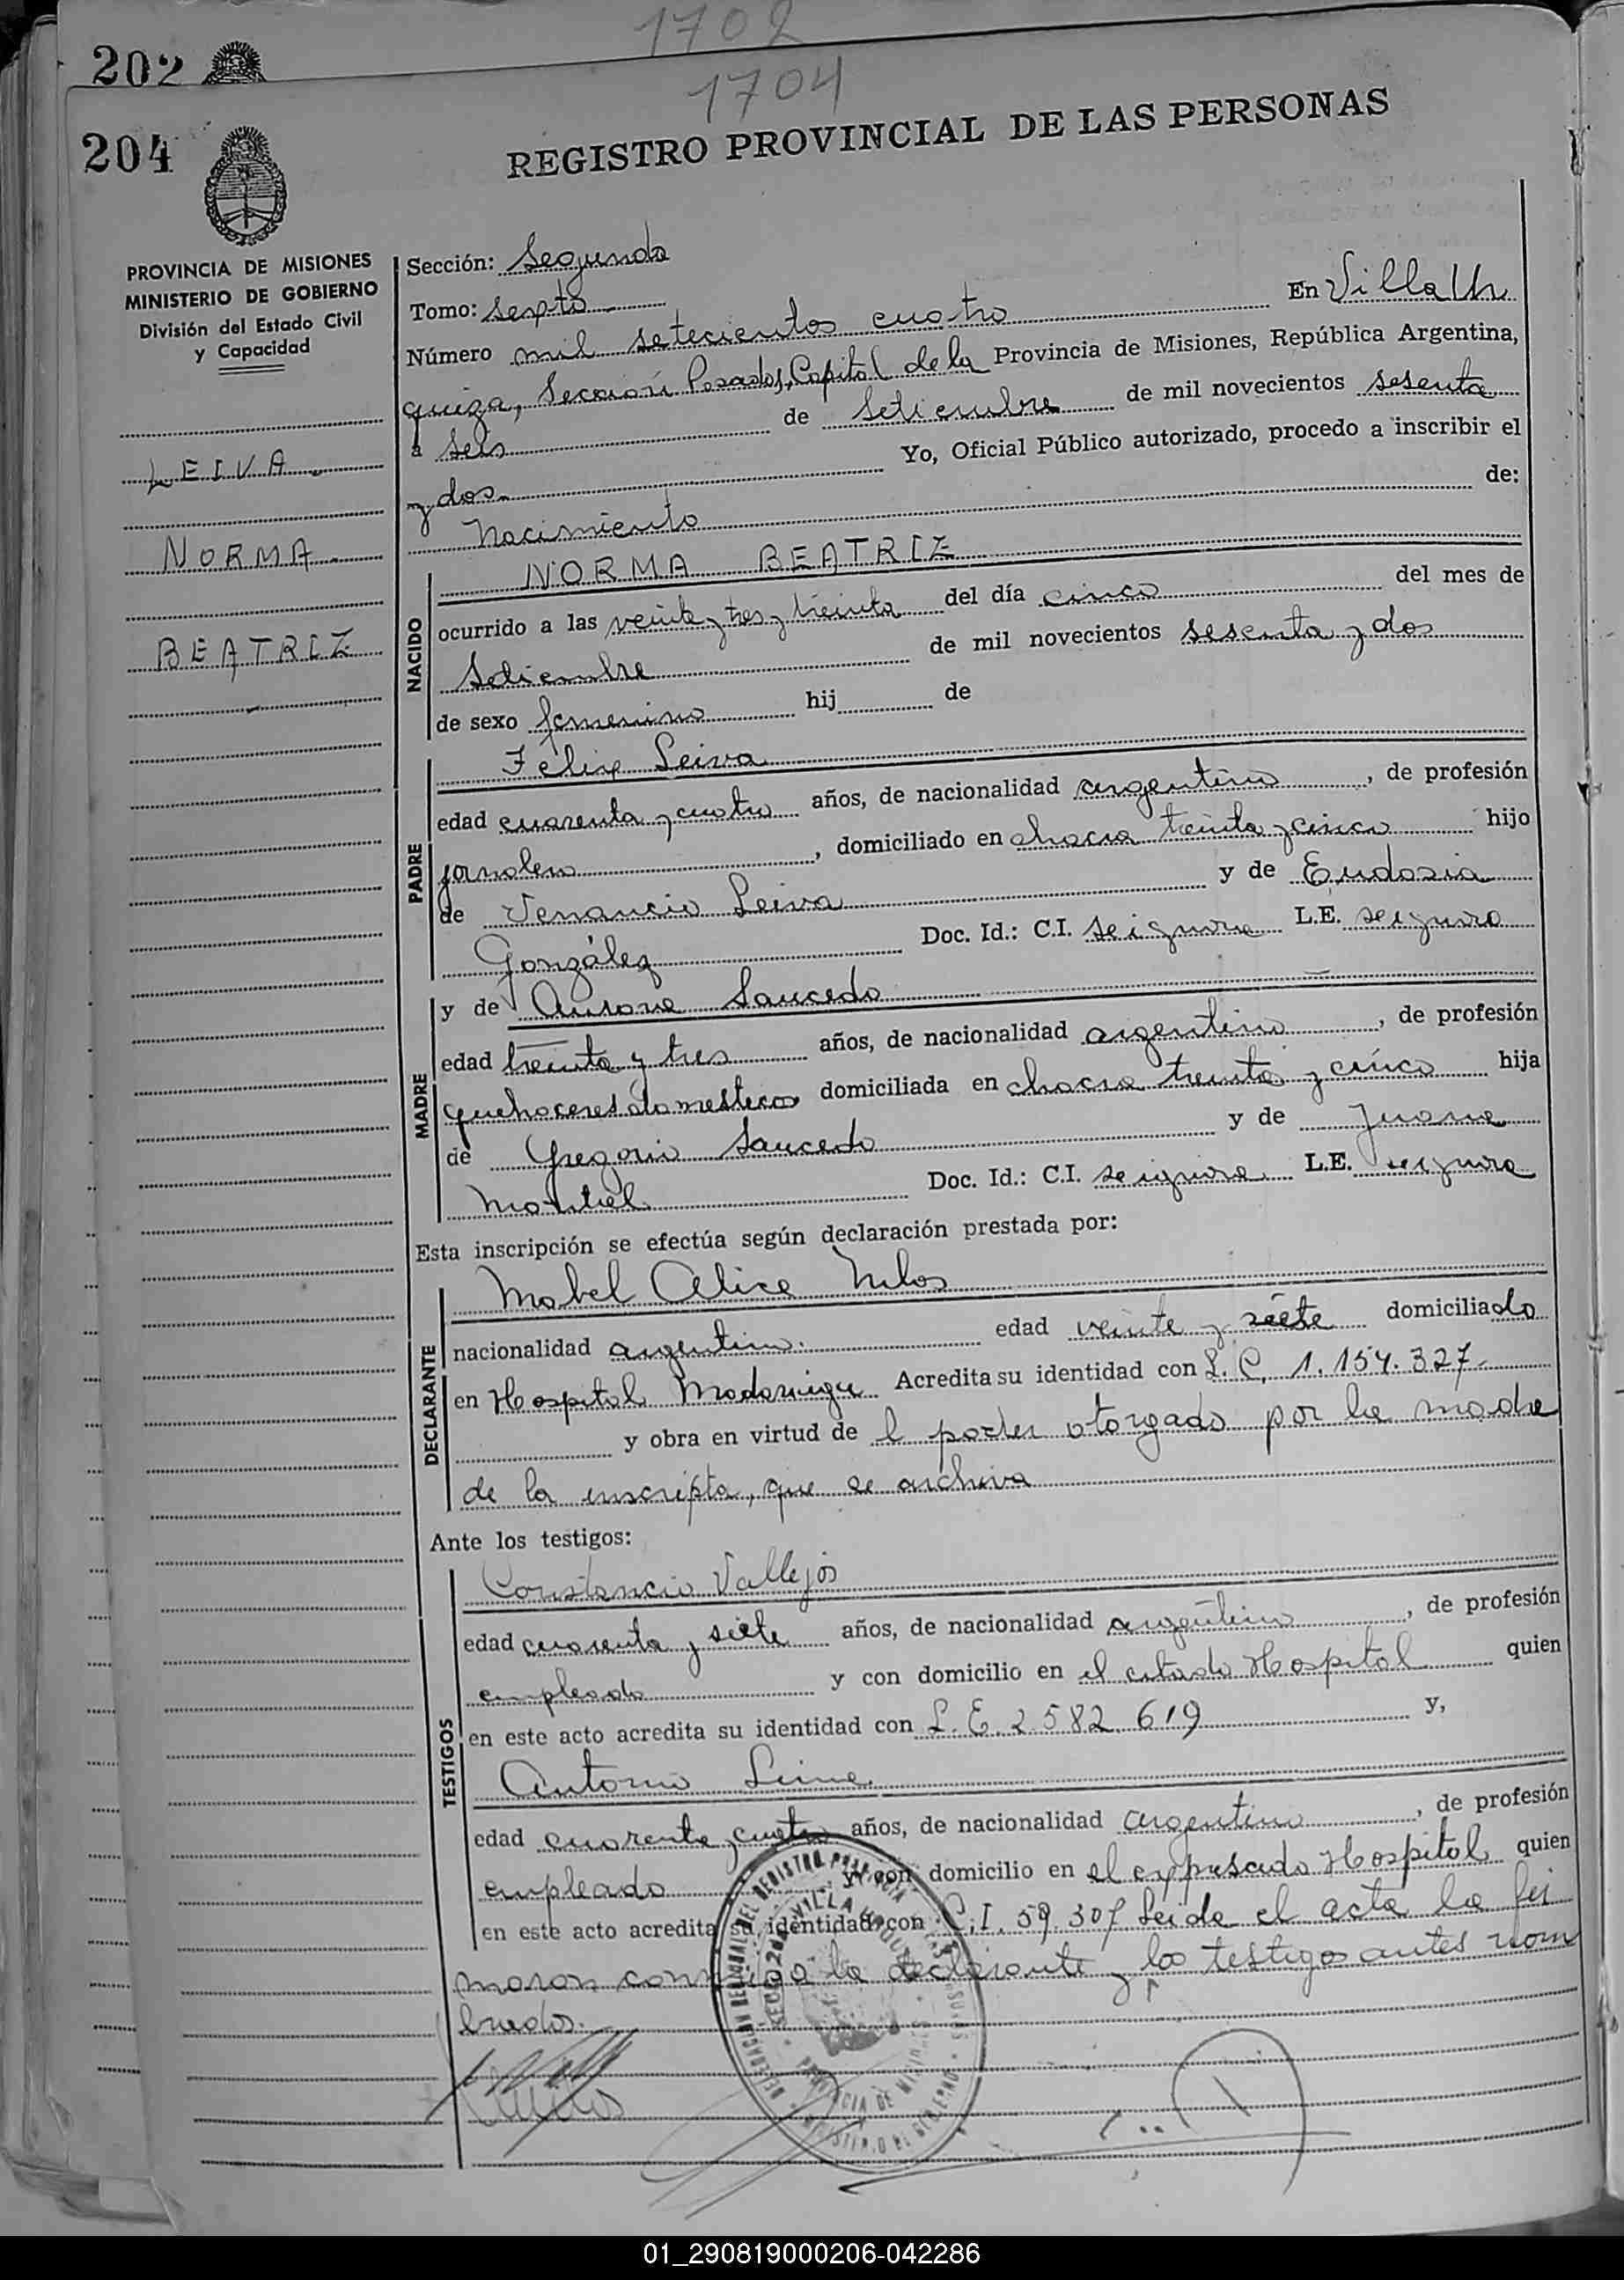 1702
202
1704
204
REGISTRO PROVINCIAL DE LAS PERSONAS
PROVINCIA DE MISIONES
MINISTERIO DE GOBIERNO
División del Estado Civil
y Capacidad
LEIVA
NORMA
BEATRIZ
Sección: Segunda
Tomo: sexto
Número mil setecientos cuatro En Villa Ur
quiza, Sección Posadas, Capital de la Provincia de Misiones, República Argentina,
a seis de setiembre de mil novecientos sesenta
y dos. Yo, Oficial Público autorizado, procedo a inscribir el
Nacimiento de:
NACIDO
NORMA BEATRIZ
ocurrido a las veinte y tres y treinta del día cinco del mes de
setiembre de mil novecientos sesenta y dos
de sexo femenino hij de
PADRE
Felix Leiva
edad cuarenta y cuatro años, de nacionalidad argentino, de profesión
jornalero, domiciliado en chacra treinta y cinco hijo
de Venancio Leiva y de Eudosia
González Doc. Id.: C.I. se ignora L.E. se ignora
MADRE
y de Saucedo
edad treinta y tres años, de nacionalidad argentina, de profesión
quehaceres domesticos domiciliada en chacra treinta y cinco hija
de Gregorio Saucedo y de Juana
Doc. Id.: C.I. se ignora L.E. se ignora
Esta inscripción se efectúa según declaración prestada por:
DECLARANTE
Mabel Alice
nacionalidad argentina. edad veinte y siete domiciliado
en Hospital Madariaga Acredita su identidad con L.C. 1.154.327-
y obra en virtud de l poder otorgado por la madre
de la inscripta, que se archiva
Ante los testigos:
TESTIGOS
Constancio Vallejos
edad cuarenta y siete años, de nacionalidad argentino, de profesión
empleado y con domicilio en el citado Hospital quien
en este acto acredita su identidad con L.E. 2.582.619 y,
Antonio
edad cuarenta y cuatro años, de nacionalidad argentino, de profesión
empleado y con domicilio en el expresado Hospital quien
en este acto acredita su identidad con C.I. 59.307 Leida el acta la fir
maron conmigo la declarante y los testigos antes nom
brados.
01_290819000206-042286